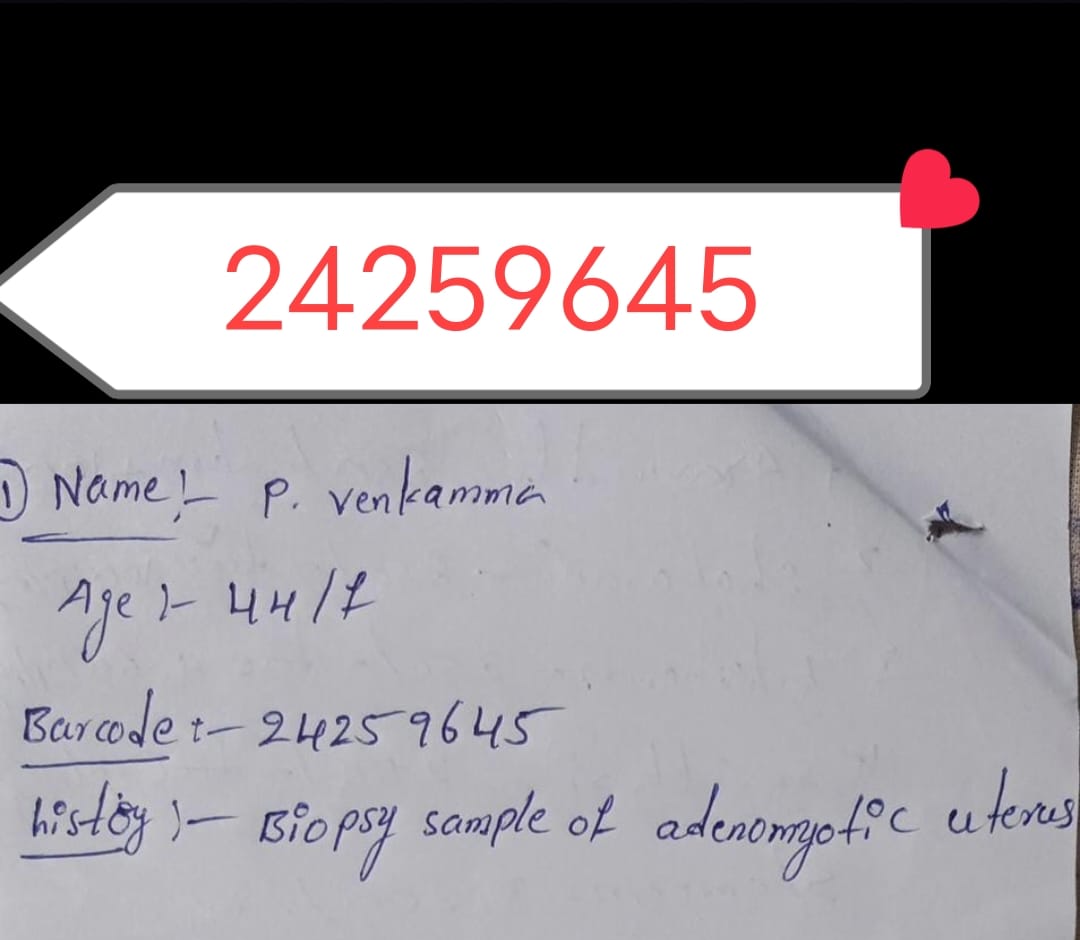 24259645
① Name:- P. venkamma
Age :- 44/f
Barcode :- 24259645
history :- Biopsy sample of adenomyotic uterus